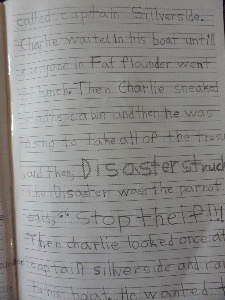 called captain Sillverside.
Charlie waited in his boat untill
everyone in Fat flounder went
lunch. Then Charlie sneaked
cabin and then he was
going to take all of the
and then, Disaster struck
The Disaster was the parrot
said, "Stop theif!!!
Then charlie looked once at
captain silverside and
boat. He wanted t